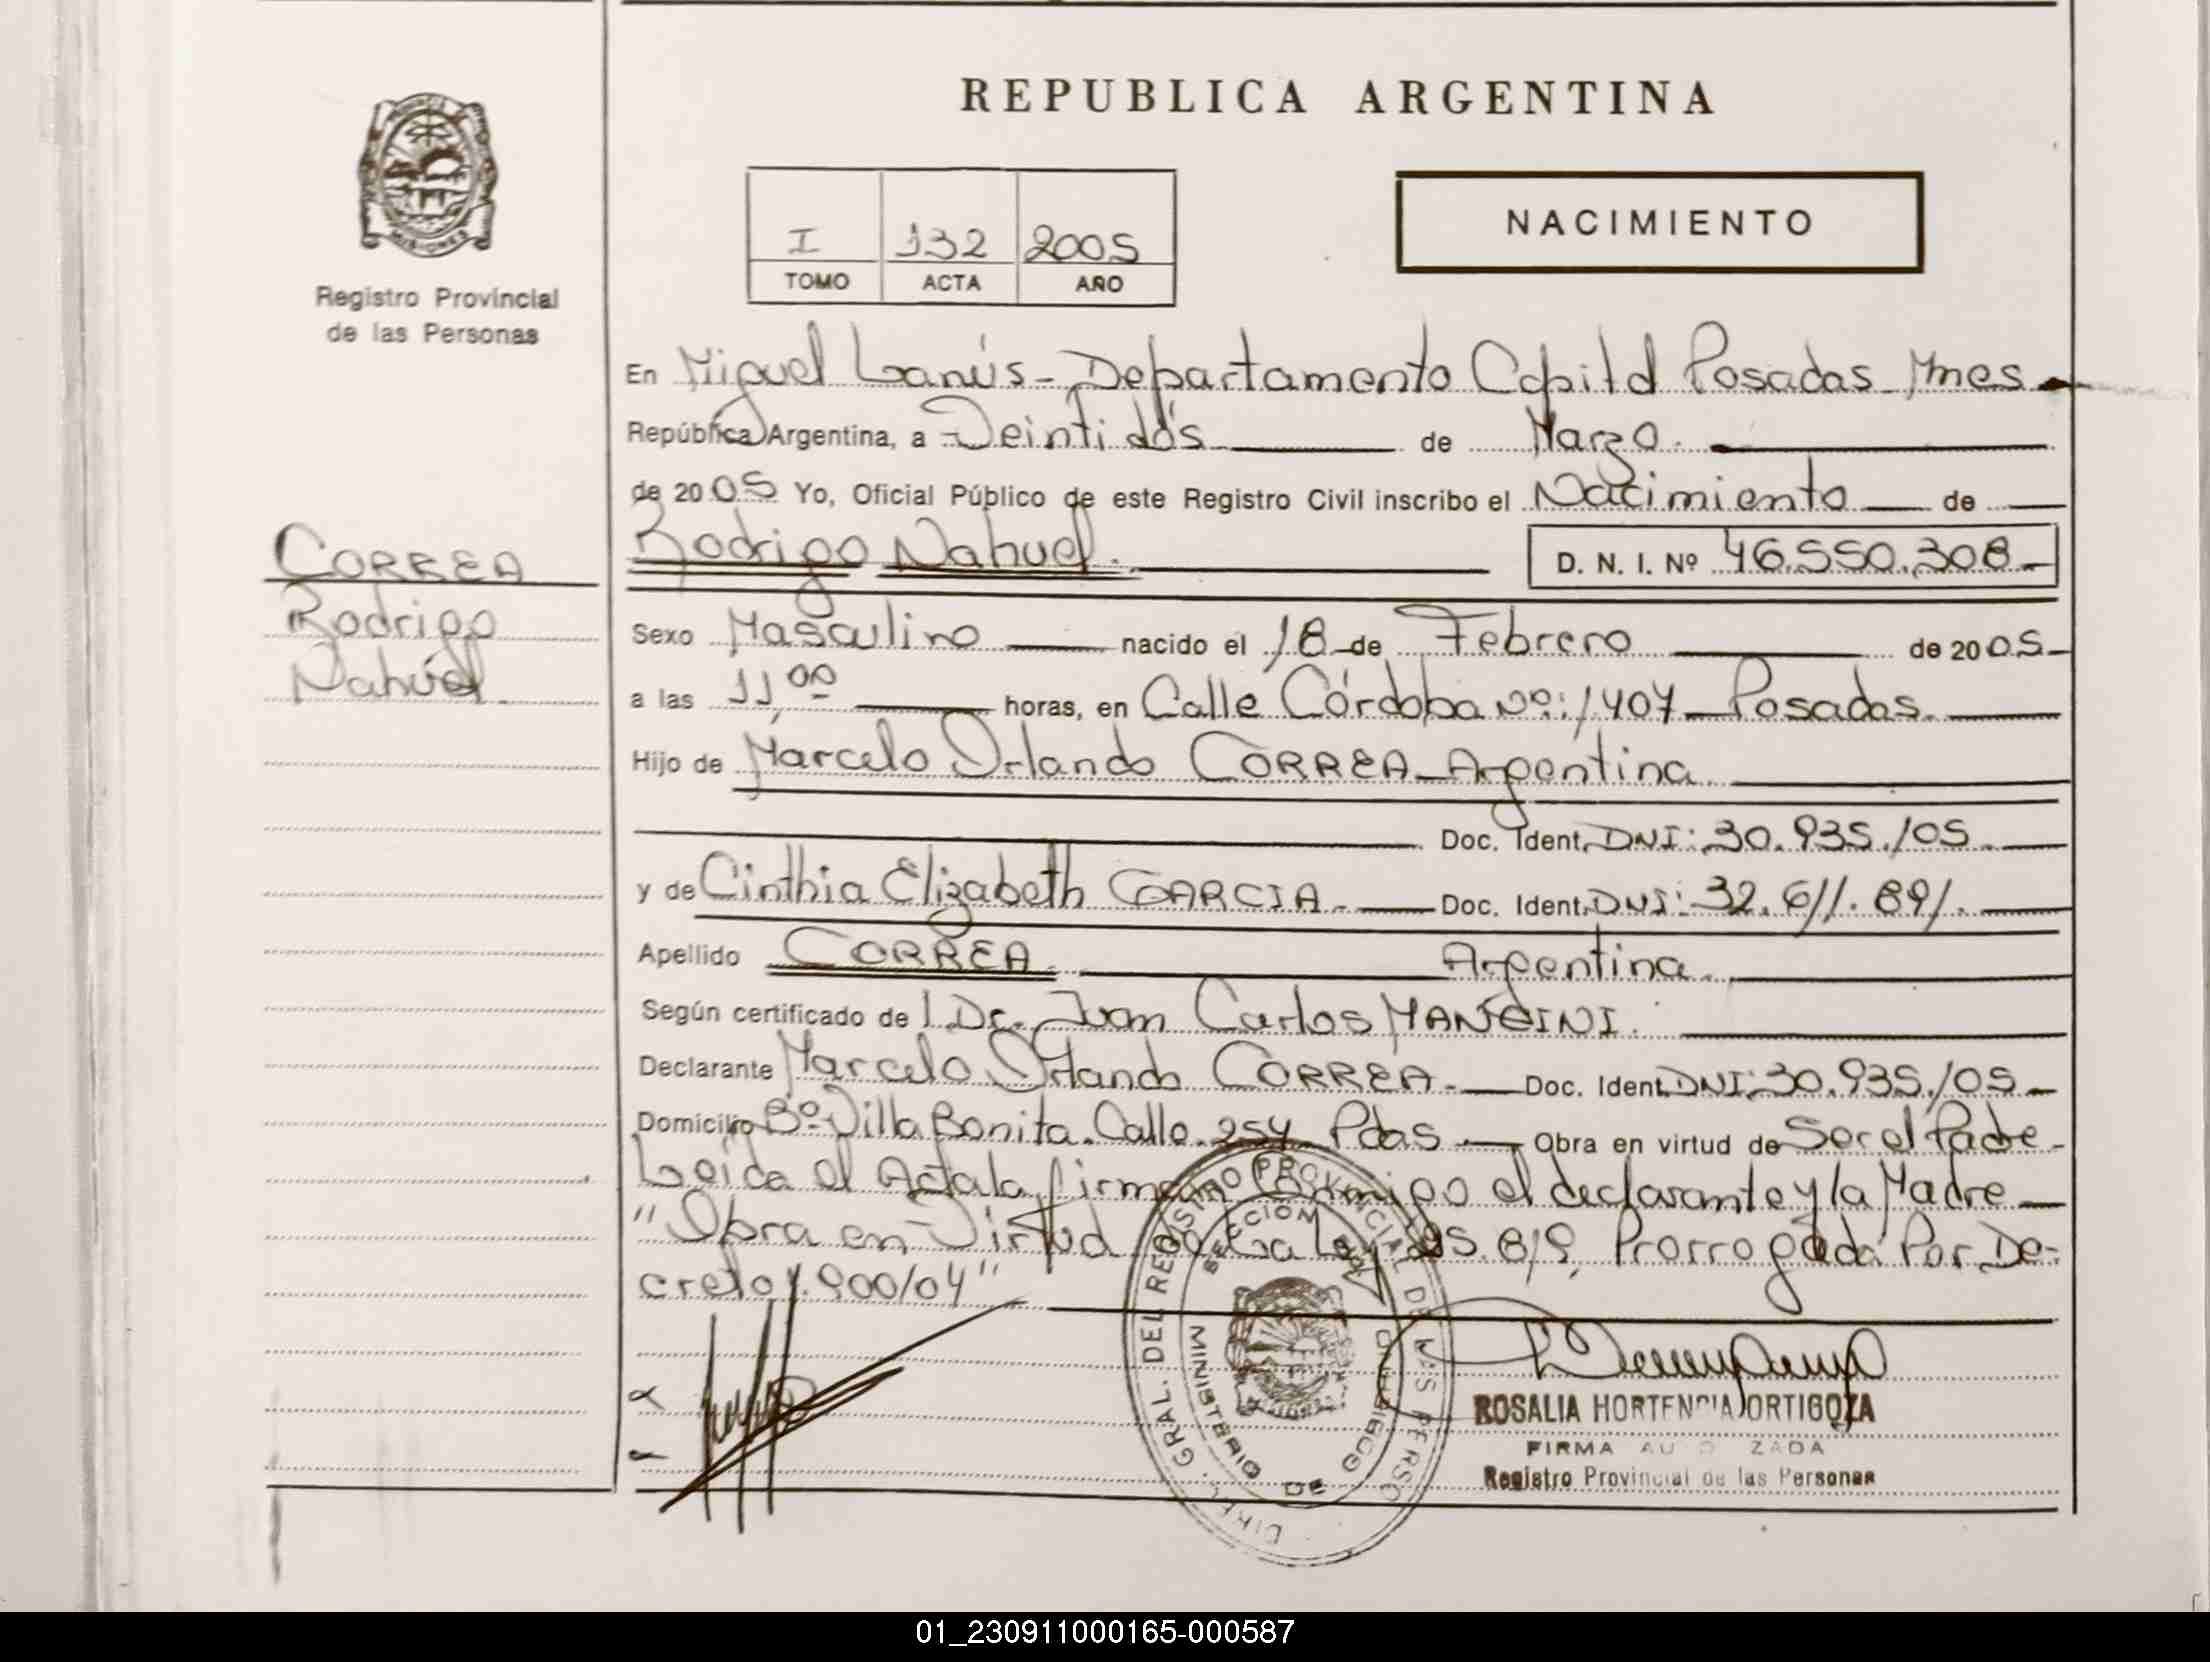 REPUBLICA ARGENTINA
MISIONES
Registro Provincial
de las Personas
I 132 2005
TOMO ACTA AÑO
NACIMIENTO
En Miguel Lanús - Departamento Capital Posadas Mnes
República Argentina, a Veintidós de Marzo
de 2005 Yo, Oficial Público de este Registro Civil inscribo el Nacimiento de
CORREA
Rodrigo
Nahuel.
Rodrigo Nahuel. D. N. I. Nº 46.550.308
Sexo Masculino nacido el 18 de Febrero de 2005
a las 11,00 horas, en Calle Córdoba Nº: 1407 Posadas.
Hijo de Marcelo Orlando CORREA Argentina
Doc. Ident. DNI: 30.935.105
y de Cinthia Elizabeth GARCIA. Doc. Ident. DNI: 32.611.891.
Apellido CORREA Argentina.
Según certificado de l Dr. Juan Carlos MANCINI.
Declarante Marcelo Orlando CORREA. Doc. Ident. DNI: 30.935.105
Domicilio Bº Villa Bonita. Calle. 254 Pdas Obra en virtud de Ser el Padre
Leida el Acta la firma conmigo el declarante y la Madre
"Obra en Virtud de La Ley 25.819, Prorrogada Por De-
creto 1.900/04"
GRAL. DEL REGISTRO PROVINCIAL DE LAS PERSO
SECCION
MINISTERIO DE GOBIERNO
ROSALIA HORTENCIA ORTIGOZA
FIRMA AUTORIZADA
Registro Provincial de las Personas
01_230911000165-000587